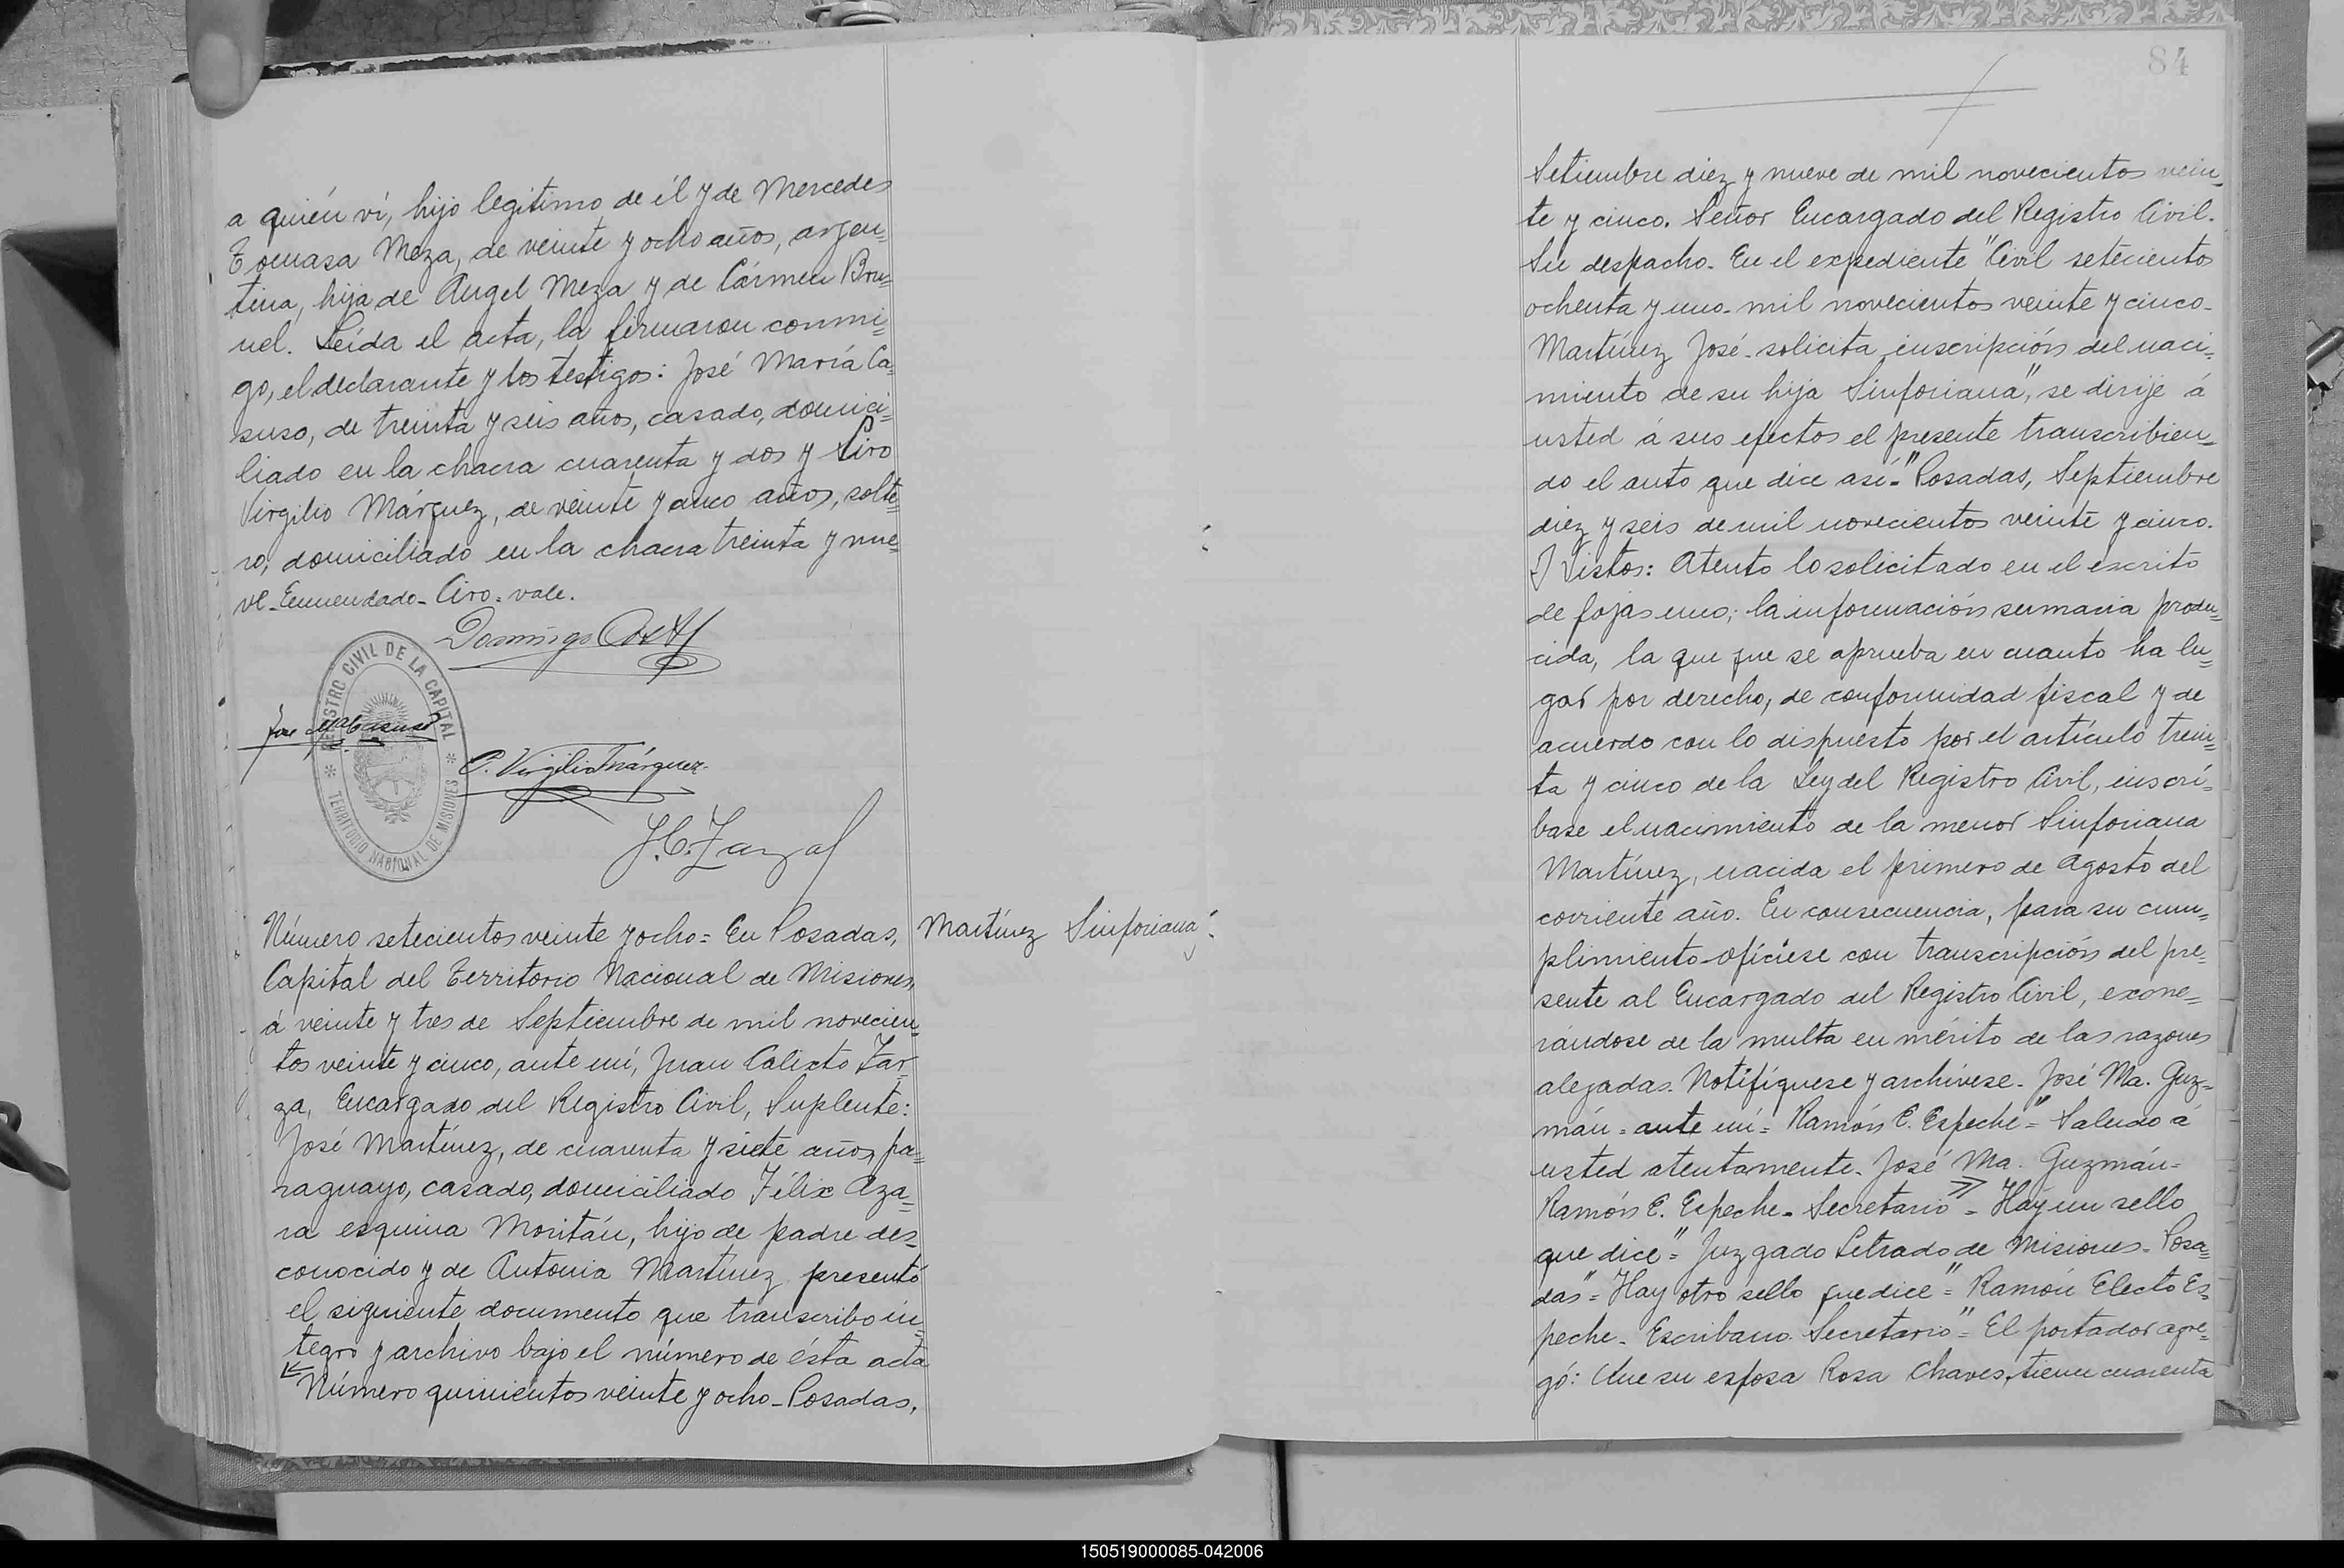 a quién ví, hijo legítimo de él y de Mercedes
Tomasa Meza, de veinte y ocho años, argen=
tina, hija de Angel Meza y de Cármen Bru=
nel. Leída el acta, la firmaron conmi=
go, el declarante y los testigos: José María Ca=
suso, de treinta y seis años, casado, domici=
liado en la chacra cuarenta y dos y Ciro
Virgilio Márquez, de veinte y cinco años, solte=
ro, domiciliado en la chacra treinta y nue=
ve-Enmendado-Ciro=vale.
Domingo
REGISTRO CIVIL DE LA CAPITAL
* TERRITORIO NACIONAL DE MISIONES *
José Ma Casuso
C. Virgilio Márquez
J. C. Zarza
Número setecientos veinte y ocho= En Posadas,
Martínez Sinforiana
Capital del Territorio Nacional de Misiones,
á veinte y tres de Septiembre de mil novecien=
tos veinte y cinco, ante mí, Juan Calixto Zar=
za, Encargado del Registro Civil, Suplente:
José Martínez, de cuarenta y siete años, pa=
raguayo, casado, domiciliado Félix Aza=
ra esquina Moritán, hijo de padre des=
conocido y de Antonia Martínez presentó
el siguiente documento que transcribo ín=
tegro y archivo bajo el número de ésta acta
"Número quinientos veinte y ocho-Posadas,
84
Setiembre diez y nueve de mil novecientos vein=
te y cinco. Señor Encargado del Registro Civil.
Su despacho. En el expediente "Civil setecientos
ochenta y uno-mil novecientos veinte y cinco-
Martínez José-solicita inscripción del naci=
miento de su hija Sinforiana", se dirije á
usted á sus efectos el presente transcribien=
do el auto que dice así-"Posadas, Septiembre
diez y seis de mil novecientos veinte y cinco.
Y Vistos: Atento lo solicitado en el escrito
de fojas uno; la información sumaria produ=
cida, la que que se aprueba en cuanto ha lu=
gar por derecho, de conformidad fiscal y de
acuerdo con lo dispuesto por el artículo trein=
ta y cinco de la Ley del Registro Civil, inscrí=
base el nacimiento de la menor Sinforiana
Martínez, nacida el primero de Agosto del
corriente año. En consecuencia, para su cum=
plimiento-ofíciese con transcripción del pre=
sente al Encargado del Registro Civil, exone=
rándose de la multa en mérito de las razones
alegadas. Notifíquese y archívese-José Ma. Guz=
mán=ante mí=Ramón E. Espeche"=Saludo á
usted atentamente. José Ma. Guzmán=
Ramón E. Espeche-Secretario"=Hay un sello
que dice="Juzgado Letrado de Misiones-Posa=
das"=Hay otro sello que dice="Ramón Electo Es=
peche-Escribano Secretario"=El portador agre=
gó: Que su esposa Rosa Chaves, tiene cuarenta
150519000085-042006